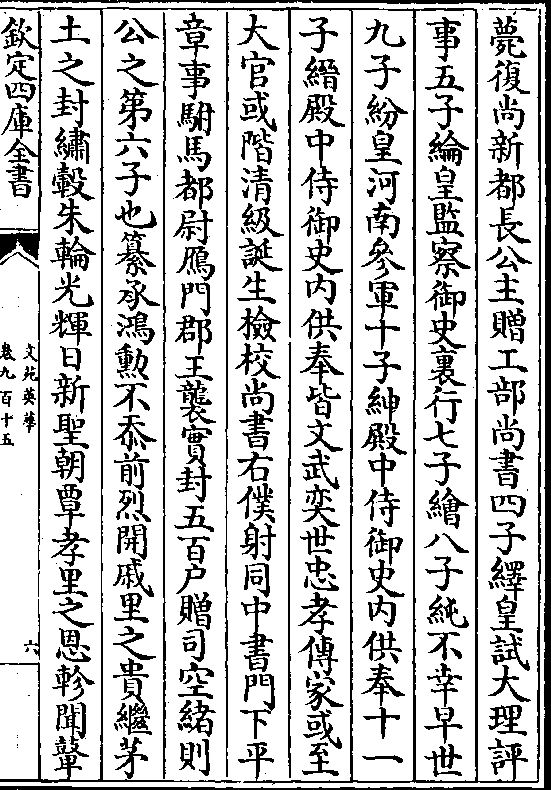 薨復尚新都長公主贈工部尚書四子繹皇試大理評
事五子綸皇監察御史裏行七子繪八子純不幸早世
九子紛皇河南參軍十子紳殿中侍御史内供奉十一
子縉殿中侍御史内供奉皆文武奕世忠孝傳家或至
大官或階清級誕生檢校尚書右僕射同中書門下平
章事駙馬都尉鴈門郡王襲實封五百户贈司空緒則
公之第六子也纂承鴻勲不忝前烈開戚里之貴繼茅
土之封繡轂朱輪光輝日新聖朝覃孝里之恩軫聞鼙
欽定四庫全書
文苑英華
卷九百十五
六